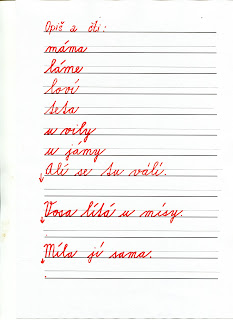 Opiš a čti:
máma
láme
loví
teta
u vily
u jámy
Alí se tu válí.
Vosa lítá u mísy.
Míla jí sama.